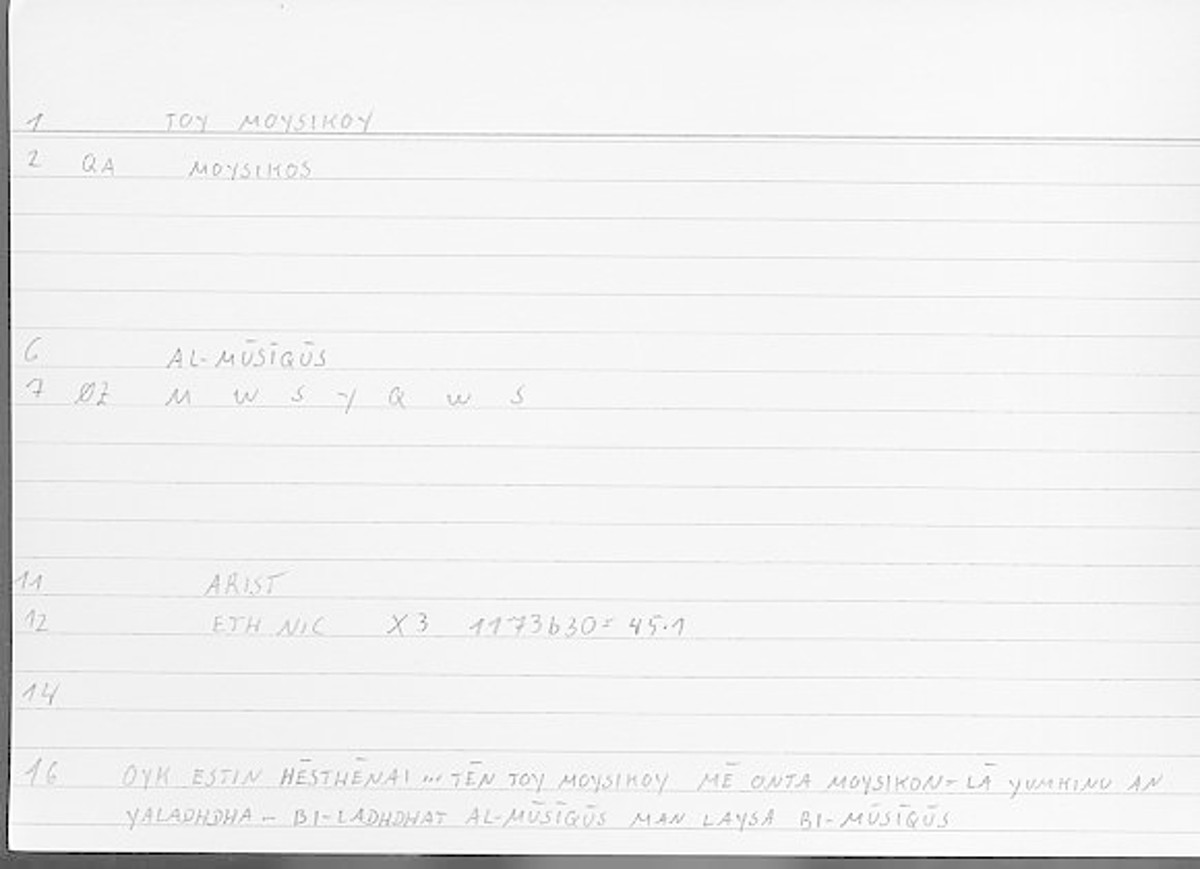 1 TOY MOYSIKOY
2 QA MOYSIKOS
6 AL-MŪSĪQŪS
7 ØZ M W S Y Q W S
11 ARIST
12 ETH NIC X3 1173b30= 45.1
14
16 OYK ESTIN HĒSTHĒNAI ... TĒN TOY MOYSIKOY MĒ ONTA MOYSIKON= LĀ YUMKINU AN
YALADHDHA - BI-LADHDHAT AL-MŪSĪQŪS MAN LAYSA BI-MŪSĪQŪS